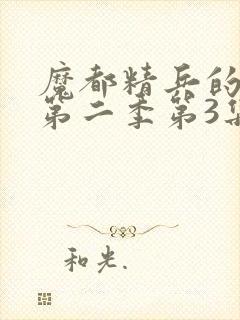 魔都精兵的
第二季第3集
和光.